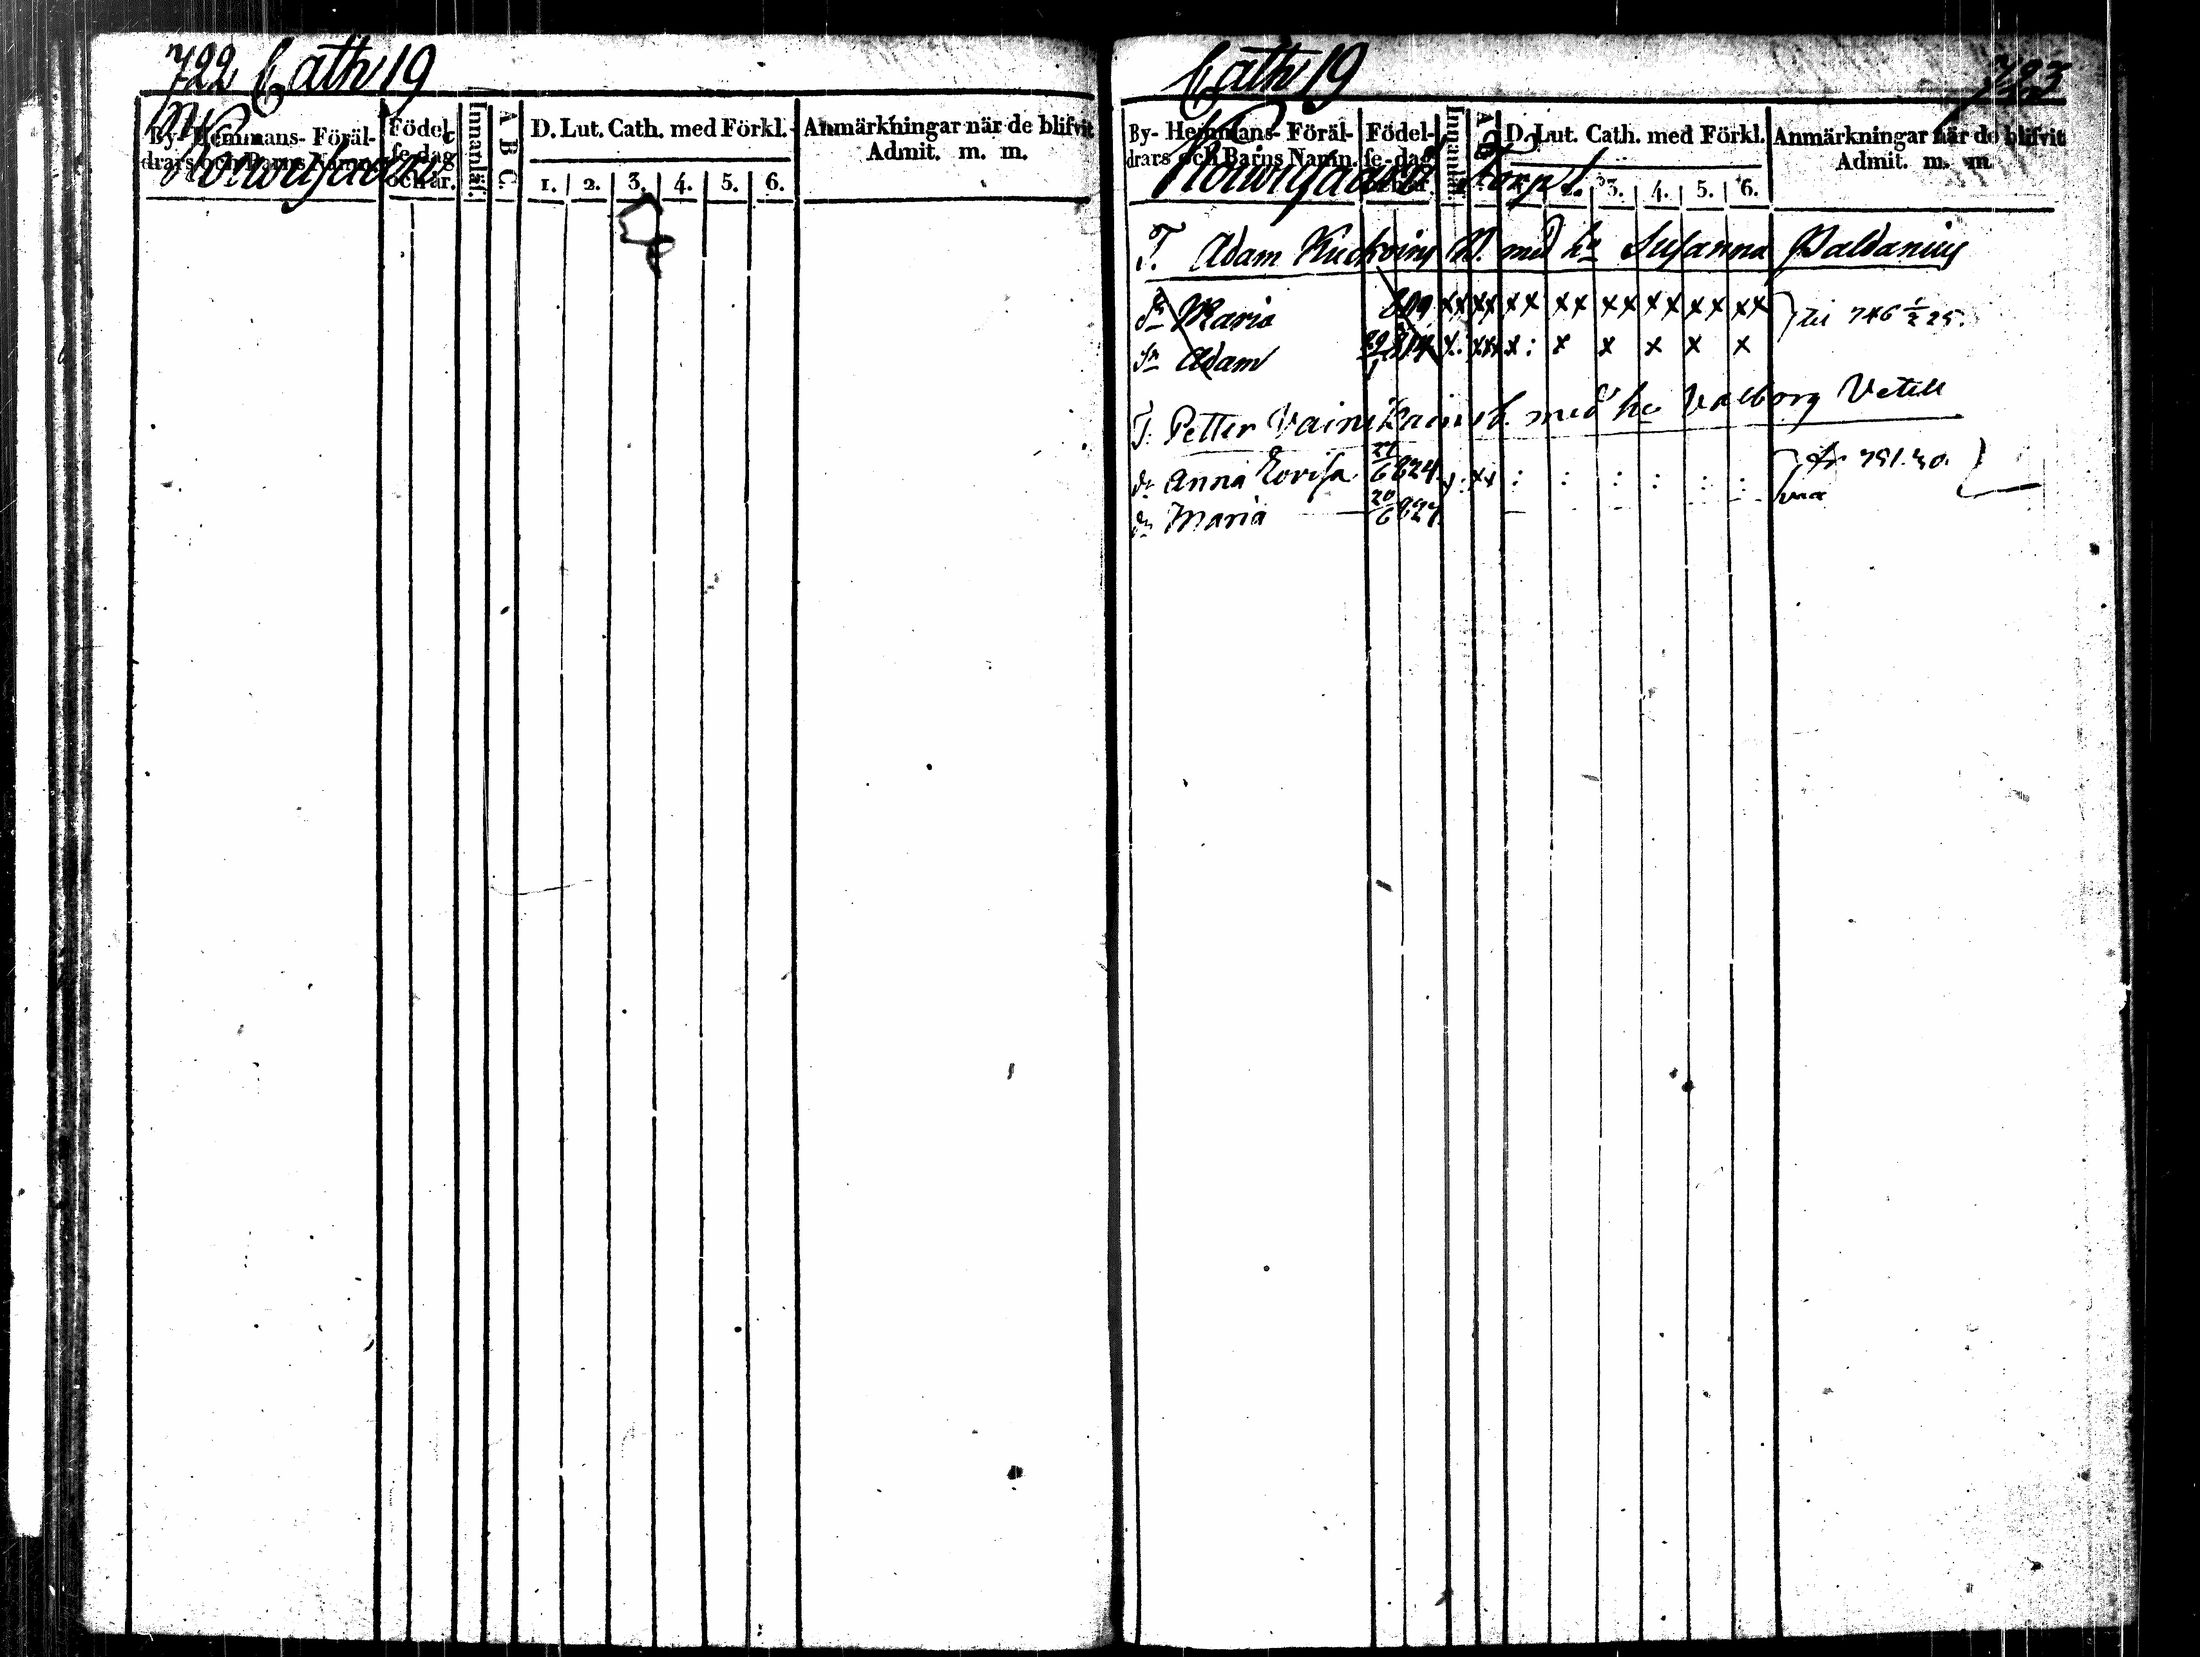 722 Cath 19
By- Hemmans- Föräl-
drars och Barns Namn.
Födel-
se-dag
och år.
Innanläs.
A B C.
D. Lut. Cath. med Förkl.
1. 2. 3. 4. 5. 6.
Anmärkningar när de blifvit
Admit. m. m.
Cath 19
723
By- Hemmans- Föräl-
drars och Barns Namn.
Födel-
se-dag
Innanläs.
A B C.
D. Lut. Cath. med Förkl.
2. 3. 4. 5. 6.
Anmärkningar när de blifvit
Admit. m. m.
Torp
T. Adam med hu Susanna Paldanius
dr Maria 809 xx xx xx xx xx xx xx xx til 746
sn Adam x. xxx x: x x x x x
T. Petter med hu Valborg Vetell
dr Anna Lovisa 21/6 824 x: xx : : : : : : fr 751.30.
dr Maria 20/6 827